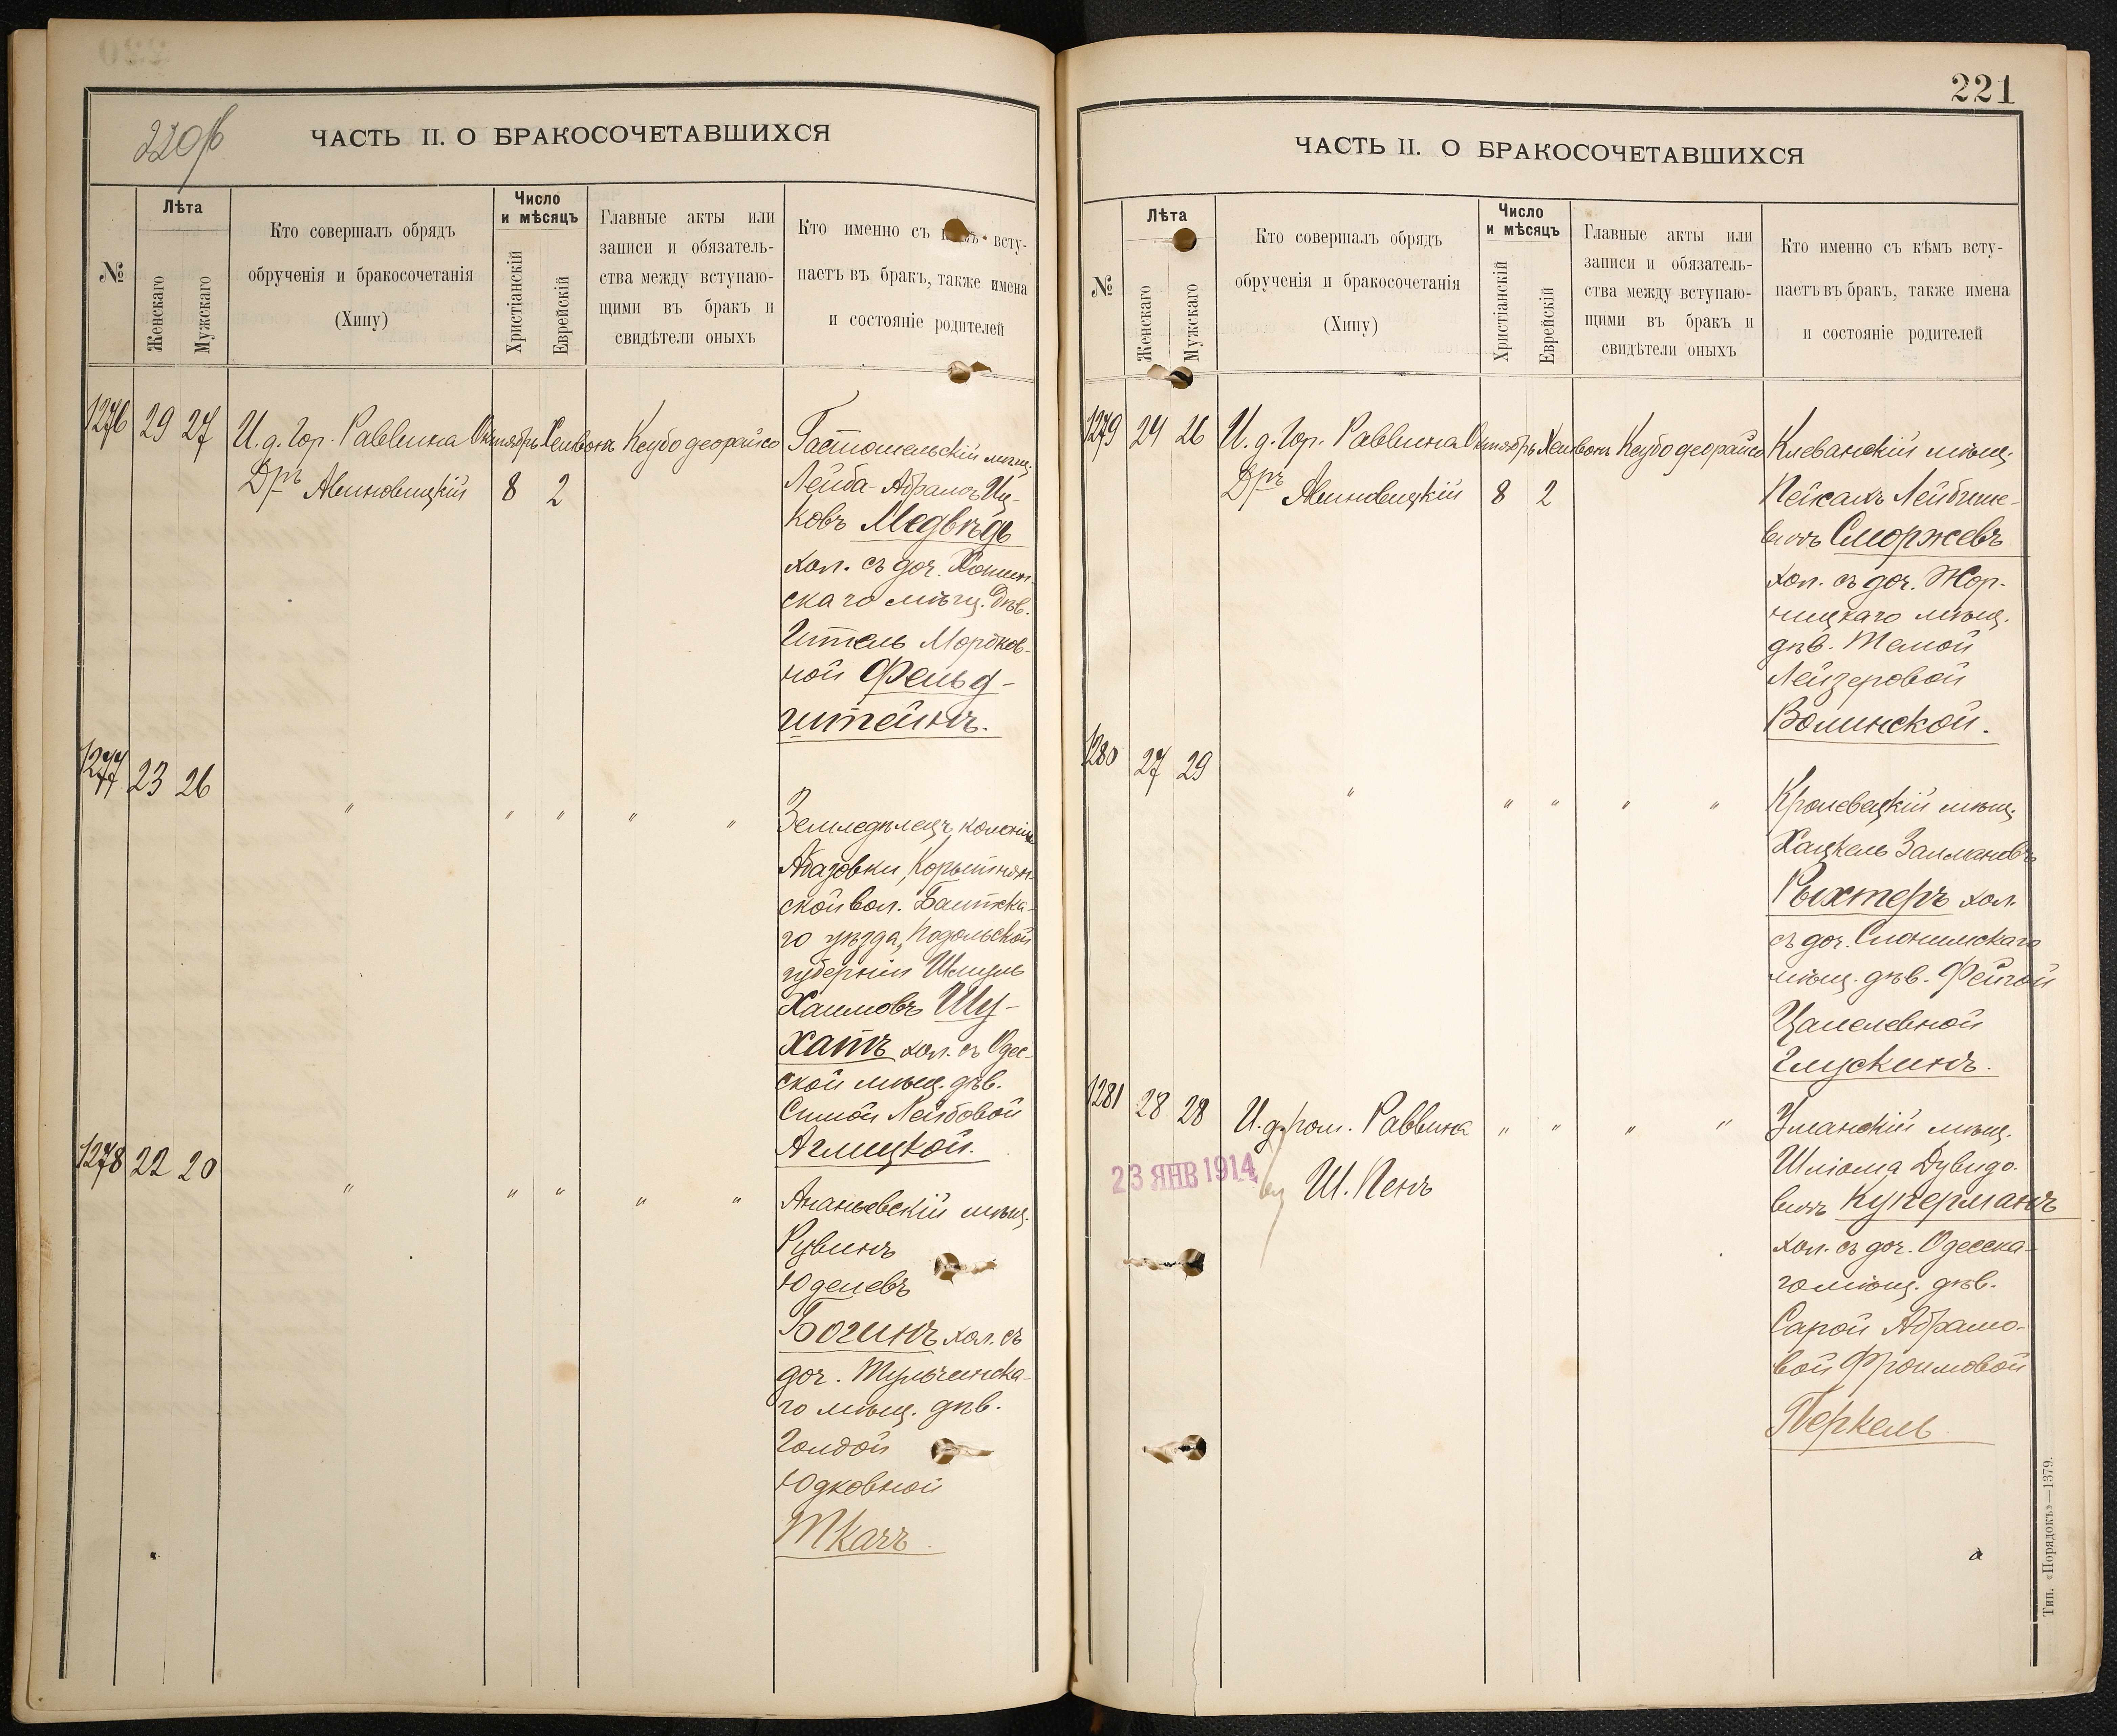 220 об
ЧАСТЬ II. О БРАКОСОЧЕТАВШИХСЯ
№
Лѣта
Женскаго
Мужскаго
Кто совершалъ обрядъ
обрученія и бракосочетанія
(Хипу)
Число
и мѣсяцъ
Христіанскій
Еврейскій
Главные акты или
записи и обязатель-
ства между вступаю-
щими въ бракъ и
свидѣтели оныхъ
Кто именно съ всту-
паетъ въ бракъ, также имена
и состояніе родителей
1276 29 27 И. д. Гор. Раввина Октябрь Хешвонъ Ксубо деорайсо
Дръ Авиновицкій 8 2
Гостомельскій мѣщ.
Лейба-Абрамъ Иц-
ковъ Медвѣдь
хол. съ доч.
скаго мѣщ. дѣв.
Гитель Мордков-
ной Фельд-
штейнъ.
1277 23 26 " " " " "
Земледѣлецъ колоніи
Абазовки, Корытнян-
ской вол. Балтска-
го уѣзда, Подольской
губерніи Шмуль
Хаимовъ Шу-
хатъ хол. съ Одес-
ской мѣщ. дѣв.
Симой Лейбовой
Аглицкой.
1278 22 20 " " " " "
Ананьевскій мѣщ.
Рувинъ
Юделевъ
Богинъ хол. съ
доч. Тульчинска-
го мѣщ. дѣв.
Голдой
Юдковной
Ткачъ.
221
ЧАСТЬ II. О БРАКОСОЧЕТАВШИХСЯ
№
Лѣта
Женскаго
Мужскаго
Кто совершалъ обрядъ
обрученія и бракосочетанія
(Хипу)
Число
и мѣсяцъ
Христіанскій
Еврейскій
Главные акты или
записи и обязатель-
ства между вступаю-
щими въ бракъ и
свидѣтели оныхъ
Кто именно съ кѣмъ всту-
паетъ въ бракъ, также имена
и состояніе родителей
1279 24 26 И. д. Гор. Раввина Октябрь Хешвонъ Ксубо деорайсо
Дръ Авиновицкій 8 2
Клеванскій мѣщ.
Пейсахъ Лейбише-
вичъ Сморжевъ
хол. съ доч. Жор-
нищкаго мѣщ.
дѣв. Темой
Лейзеровой
Волинской.
1280 27 29 " " " " "
Кролевецкій мѣщ.
Хацкель Залмановъ
Рыхтеръ хол.
съ доч. Слонимскаго
мѣщ. дѣв. Фейгой
Цалелевной
Глускинъ.
1281 28 28 И. д. пом. Раввина " " " "
Ш. Пенъ
23 ЯНВ 1914
Уманскій мѣщ.
Шліома Дувидо-
вичъ Куперманъ
хол. съ доч. Одесска-
го мѣщ. дѣв.
Сарой Абрамо-
вой Фроимовой
Перкель
Тип. «Порядокъ»—1379.